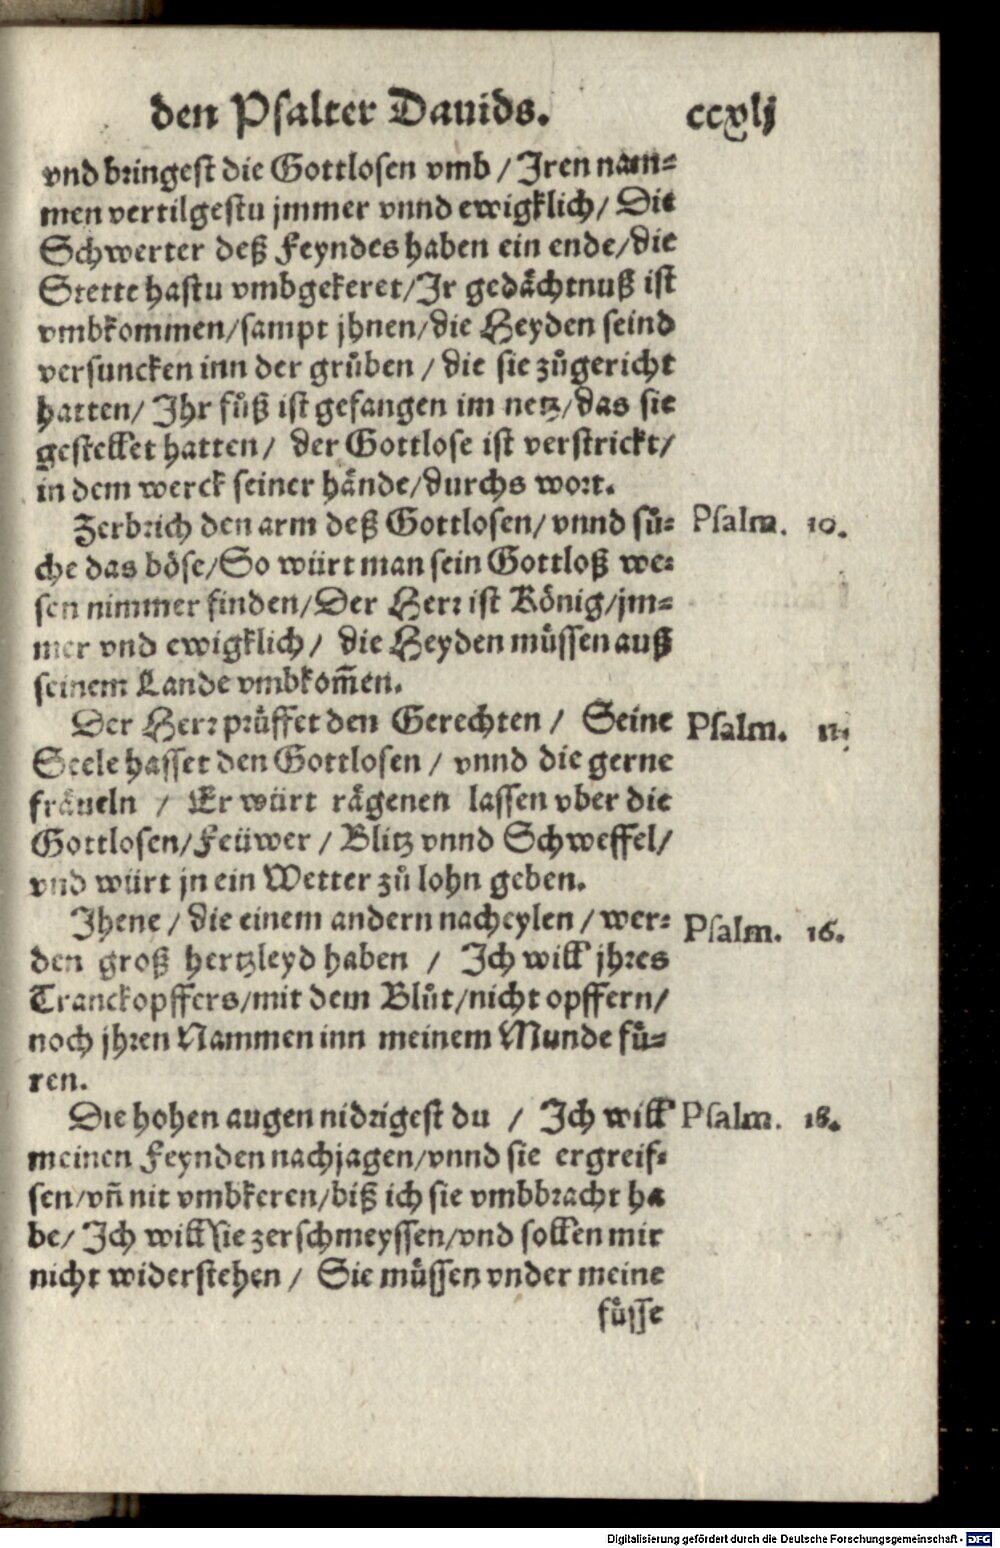 den Psalter Dauids. ccxlj
vnd bringest die Gottlosen vmb / Jren nam⸗
men vertilgestu jmmer vnnd ewigklich / Die
Schwerter deß Feyndes haben ein ende / die
Stette hastu vmbgekeret / Jr gedächtnuß ist
vmbkommen / sampt jhnen / die Heyden seind
versuncken inn der grůben / die sie zůgericht
hatten / Jhr fůß ist gefangen im netz / das sie
gestellet hatten / der Gottlose ist verstrickt /
in dem werck seiner hände / durchs wort.
Zerbrich den arm deß Gottlosen / vnnd sů⸗ Psalm. 10.
che das böse / So würt man sein Gottloß we⸗
sen nimmer finden / Der Herr ist König / jm⸗
mer vnd ewigklich / die Heyden müssen auß
seinem Lande vmbkom̃en.
Der Herr prüffet den Gerechten / Seine Psalm. 11.
Seele hasset den Gottlosen / vnnd die gerne
fräueln / Er würt rägenen lassen vber die
Gottlosen / Feüwer / Blitz vnnd Schweffel /
vnd würt jn ein Wetter zů lohn geben.
Jhene / die einem andern nacheylen / wer⸗ Psalm. 16.
den groß hertzleyd haben / Jch will jhres
Tranckopffers / mit dem Blůt / nicht opffern /
noch jhren Nammen inn meinem Munde fü⸗
ren.
Die hohen augen nidrigest du / Jch will Psalm. 18.
meinen Feynden nachjagen / vnnd sie ergreif⸗
fen / vn̄ nit vmbkeren / biß ich sie vmbbracht ha
be / Jch will sie zerschmeyssen / vnd sollen mir
nicht widerstehen / Sie müssen vnder meine
füsse
Digitalisierung gefördert durch die Deutsche Forschungsgemeinschaft - DFG